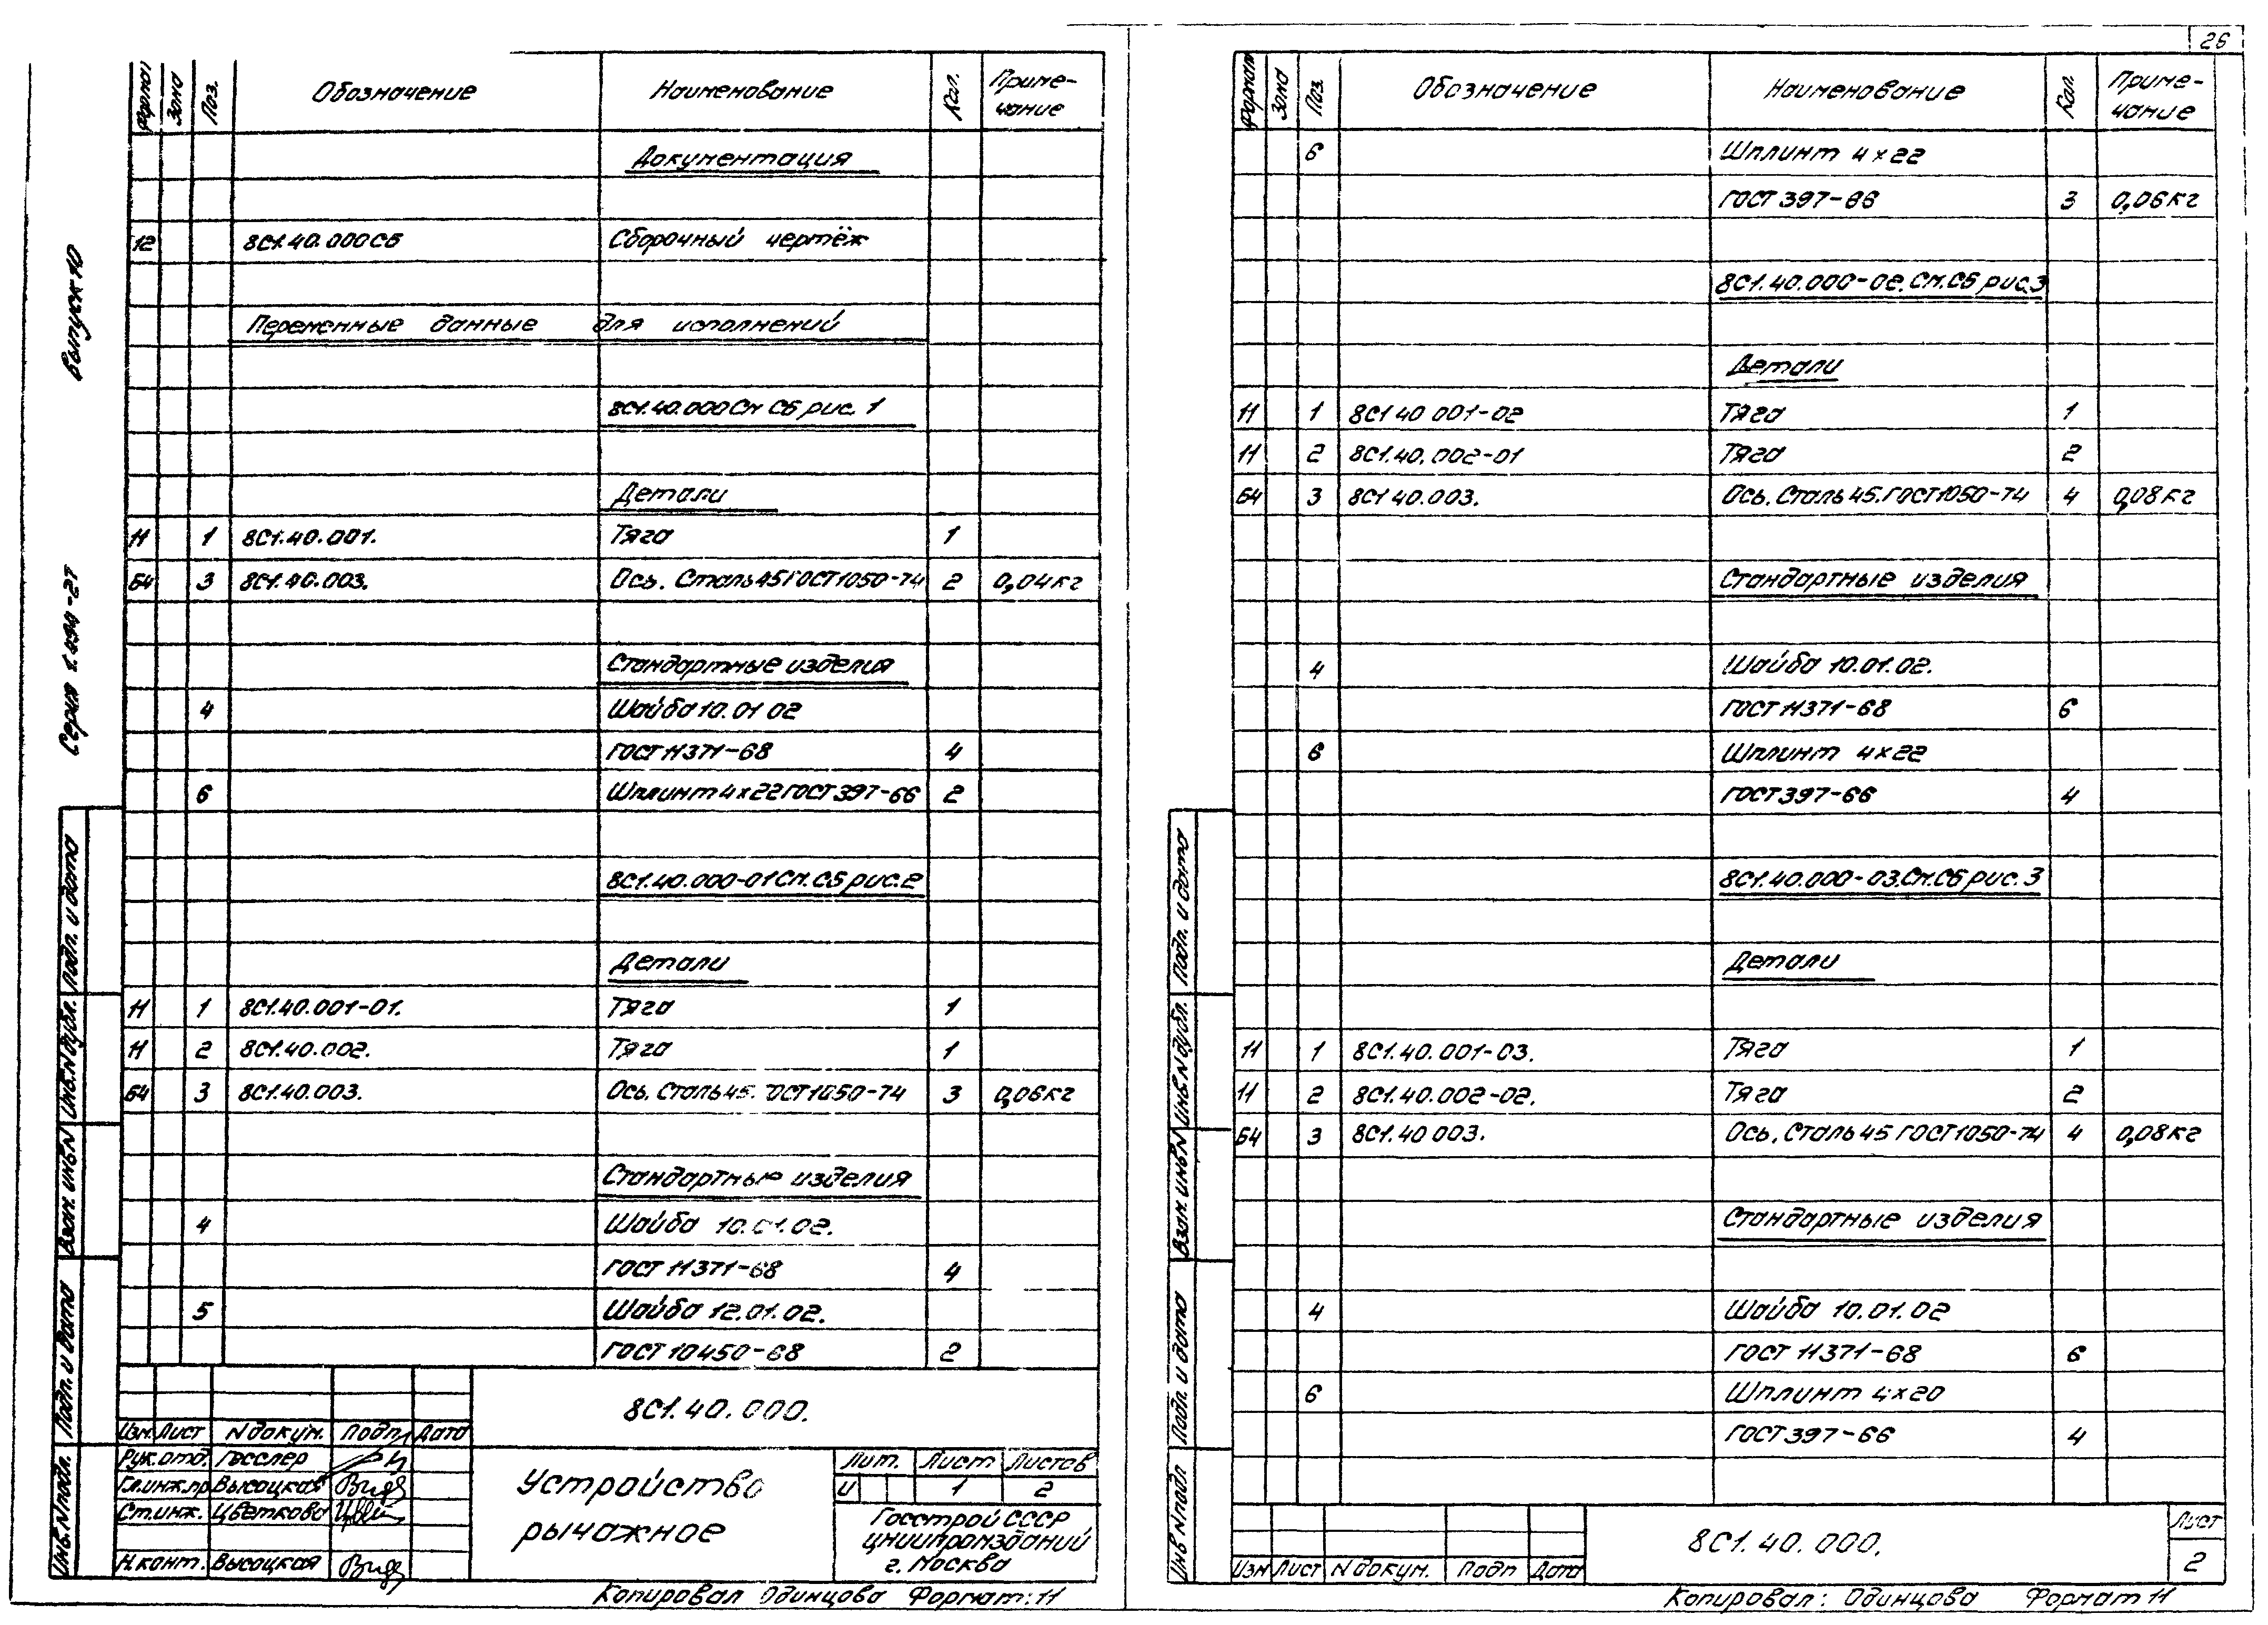 26
Серия 1.494-27 Выпуск 10
Формат Зона Поз. Обозначение Наименование Кол. Приме-
чание
Документация
12 8С1.40.000СБ Сборочный чертёж
Переменные данные для исполнений
8С1.40.000 См СБ рис. 1
Детали
11 1 8С1.40.001. Тяга 1
Б4 3 8С1.40.003. Ось. Сталь 45 ГОСТ 1050-74 2 0,04кг
Стандартные изделия
4 Шайба 10.01 02
ГОСТ 11371-68 4
6 Шплинт 4×22 ГОСТ 397-66 2
8С1.40.000-01 См. СБ рис. 2
Детали
11 1 8С1.40.001-01. Тяга 1
11 2 8С1.40.002. Тяга 1
Б4 3 8С1.40.003. Ось. Сталь 45. ГОСТ 1050-74 3 0,06кг
Стандартные изделия
4 Шайба 10.01.02.
ГОСТ 11371-68 4
5 Шайба 12.01.02.
ГОСТ 10450-68 2
Подп. и дата
Инв. N дубл.
Взам. инв. N
Подп. и дата
Инв. N подл.
8С1.40.000.
Изм Лист N докум. Подп. Дата
Рук. отд. Гесслер
Гл. инж. пр Высоцкая
Ст. инж. Цветкова
Н. конт. Высоцкая
Устройство
рычажное
Лит. Лист Листов
И 1 2
Госстрой СССР
ЦНИИпромзданий
г. Москва
Копировал Одинцова Формат: 11
Формат Зона Поз. Обозначение Наименование Кол. Приме-
чание
6 Шплинт 4×22
ГОСТ 397-66 3 0,06кг
8С1.40.000-02. См. СБ рис. 3
Детали
11 1 8С1 40 001-02 Тяга 1
11 2 8С1.40.002-01 Тяга 2
Б4 3 8С1 40.003. Ось. Сталь 45. ГОСТ 1050-74 4 0,08кг
Стандартные изделия
4 Шайба 10.01.02.
ГОСТ 11371-68 6
6 Шплинт 4×22
ГОСТ 397-66 4
8С1.40.000-03. См. СБ рис. 3
Детали
11 1 8С1.40.001-03. Тяга 1
11 2 8С1.40.002-02. Тяга 2
Б4 3 8С1.40 003. Ось. Сталь 45 ГОСТ 1050-74 4 0,08кг
Стандартные изделия
4 Шайба 10.01.02
ГОСТ 11371-68 6
6 Шплинт 4×20
ГОСТ 397-66 4
Подп. и дата
Инв. N дубл.
Взам. инв. N
Подп. и дата
Инв N подл
8С1.40.000.
Лист
2
Изм Лист N докум. Подп Дата
Копировал: Одинцова Формат 11